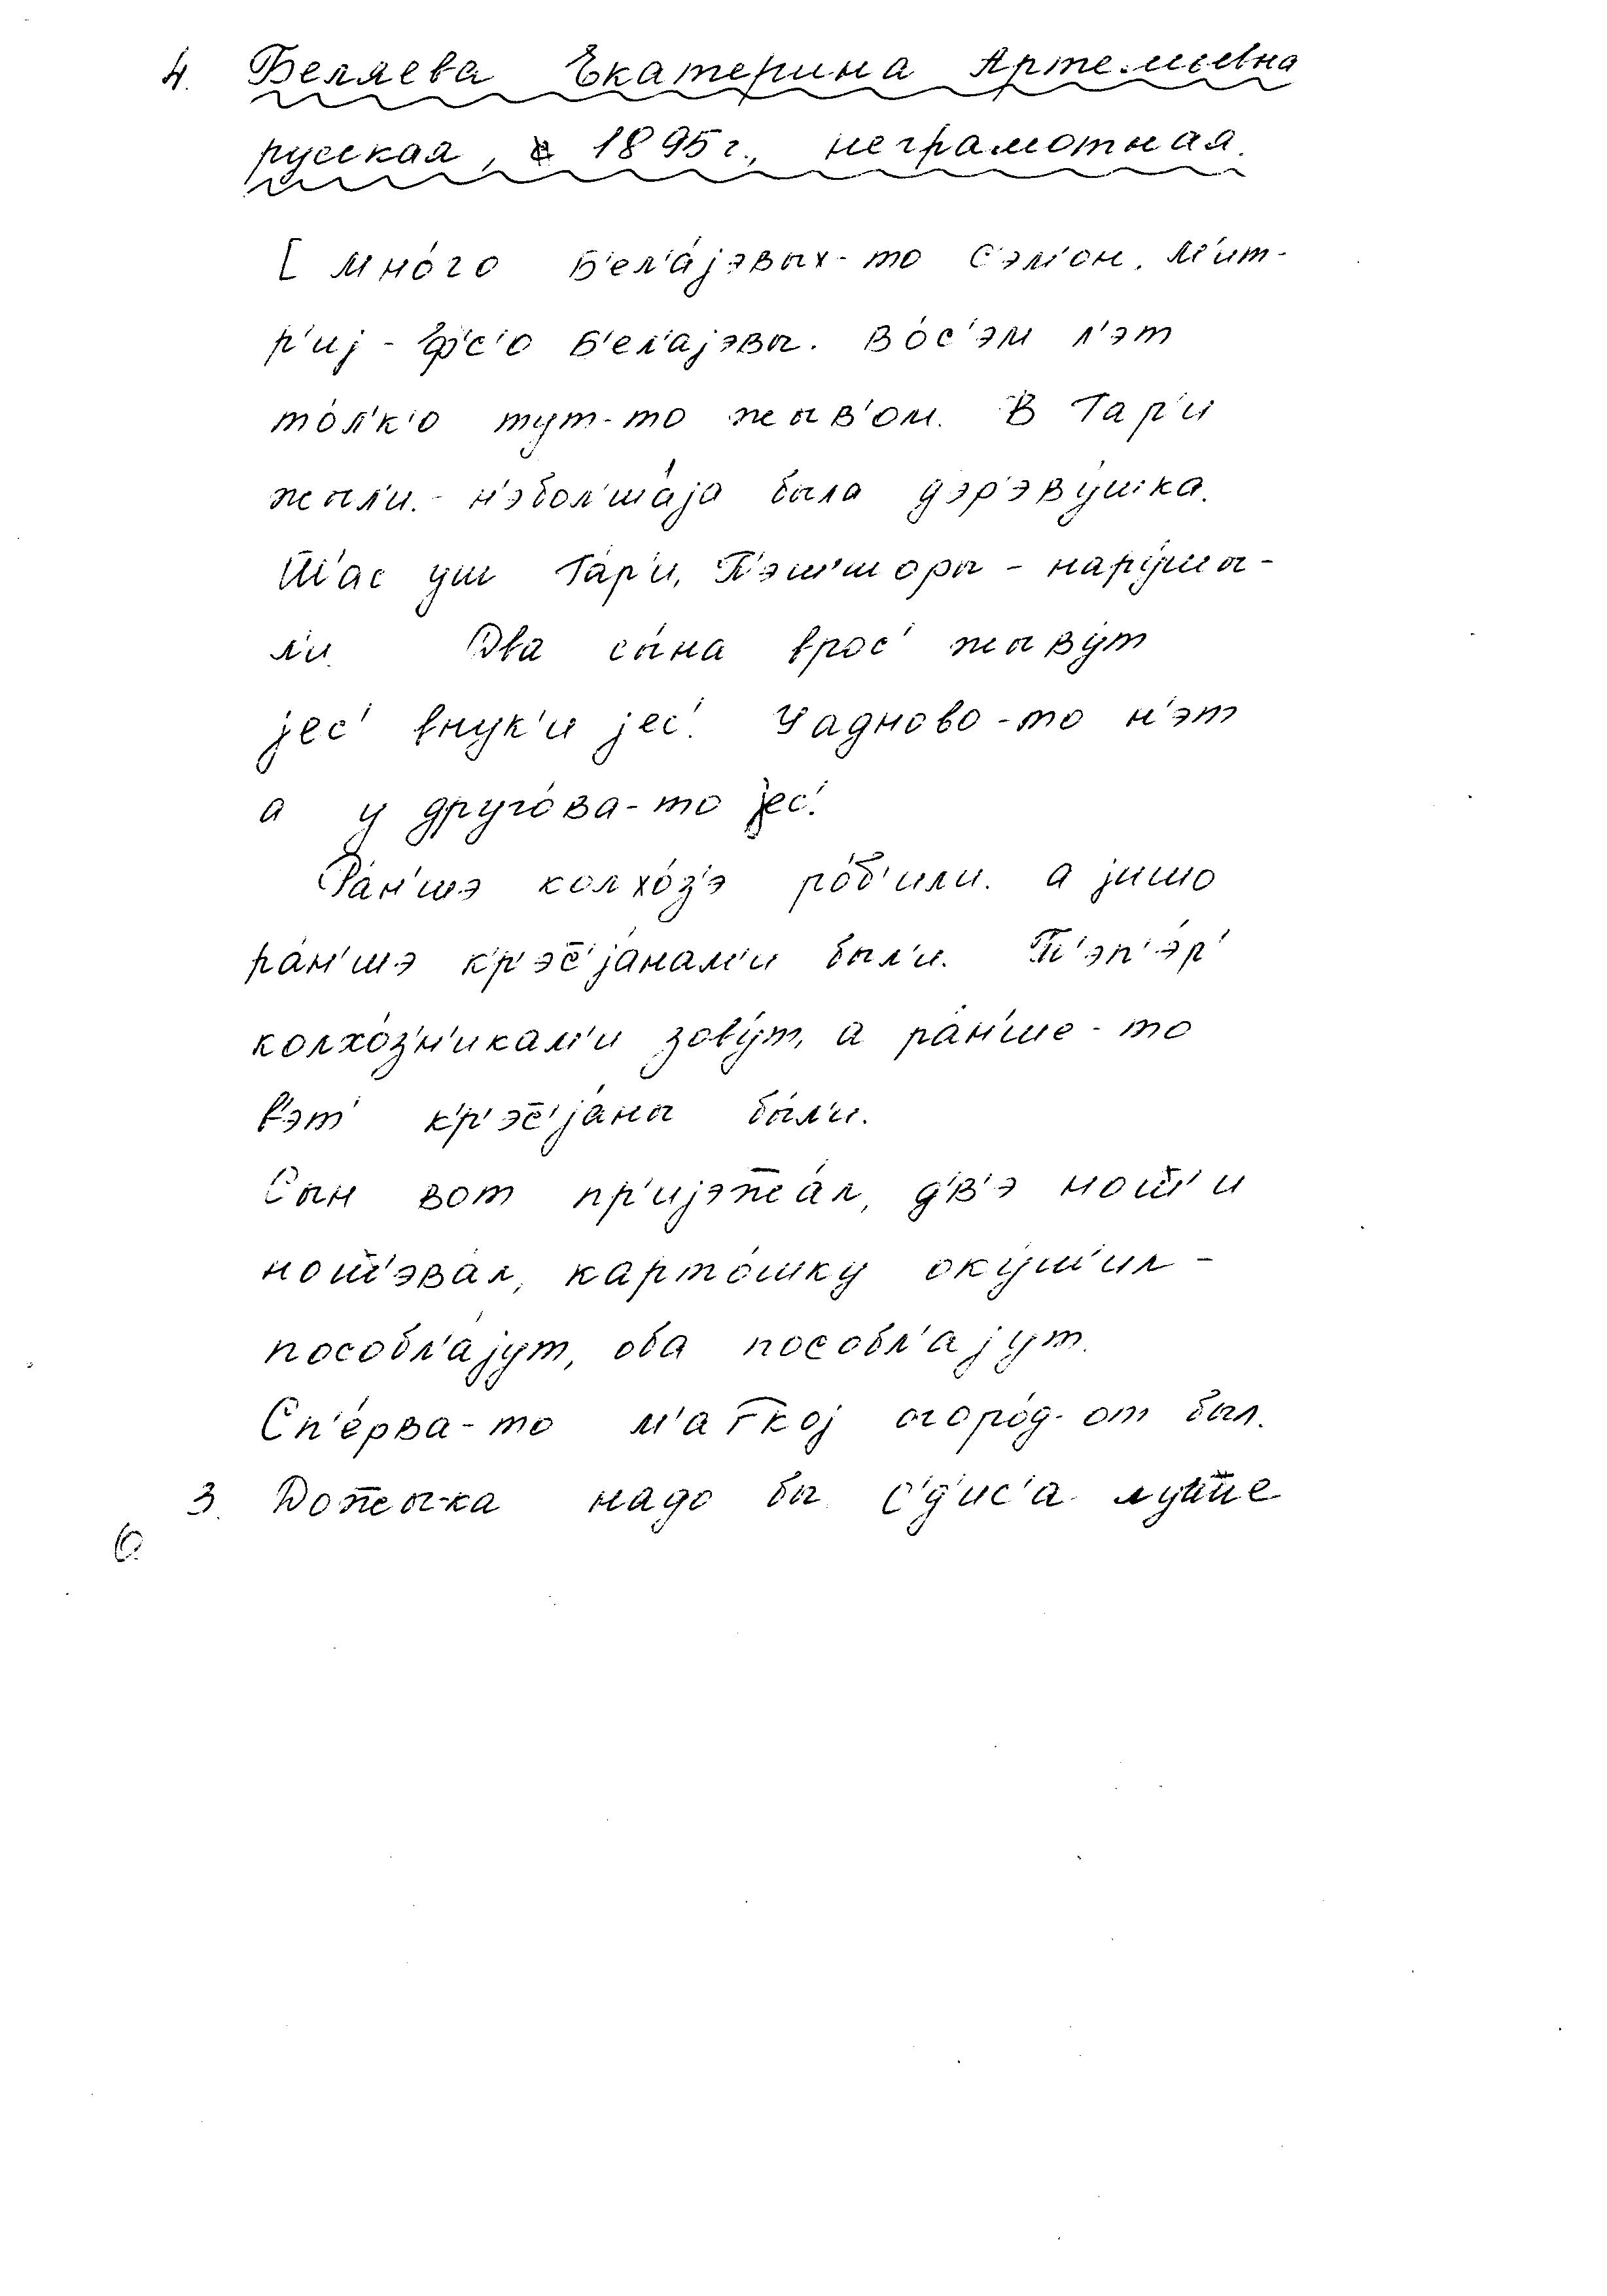 4. Беляева Екатерина Артемьевна
русская, 1895 г., неграмотная.
[ Мно́го Б'ел'а́јэвых-то С'эм'он, М'ит-
р'иј - ф'с'о Б'ел'ајэвы. Во́с'эм л'эт
то́л'к'о тут-то жыв'ом. В Гар'и
жыл'и. - н'эбол'ша́ја была дэр'эву́шка.
Ш'ас уш Га́р'и, П'эш'шоры - нару́шы-
л'и. Два сы́на врос' жыву́т
јес' внук'и јес'. У адново-то н'эт
а у друго́ва-то јес'.
Ра́н'шэ колхо́з'э ро́б'или. а јишо
ра́н'шэ к'р'эс̄'ја́нам'и был'и. Т'эп'э́р'
колхо́з'н'икам'и зову́т, а ра́н'ше-то
в'эт' к'р'эс̄'ја́ны бы́л'и.
Сын вот пр'ијэжжа́л, д'в'э ноч'и
ноч'эва́л, карто́шку оку́ч'ил -
пособл'а́јут, оба пособл'ајут.
Сп'е́рва-то м'аткој огоро́д-от был.
3. Дожжы-ка надо бы с'д'ис'а лучше
6.